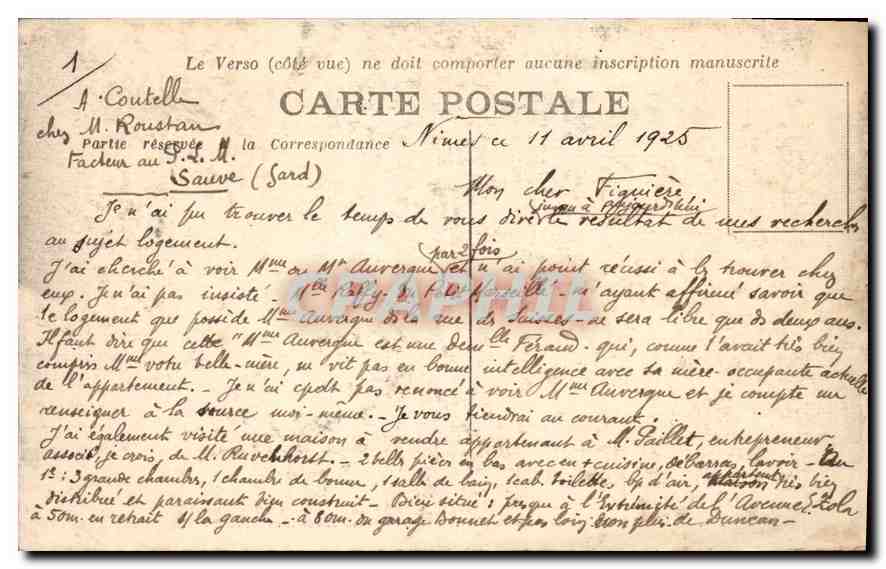 1/
Le Verso (côté vue) ne doit comporter aucune inscription manuscrite
A. Coutelle
CARTE POSTALE
chez M. Roustan
Partie réservée à la Correspondance
Nîmes ce 11 avril 1925
Facteur au P.L.M.
Sauve (Gard)
Mon cher Figuière
jusqu'à aujourd'hui
Je n'ai pu trouver le temps de vous dire le résultat de mes recherches
au sujet logement.
par 2 fois
J'ai cherché à voir Mme ou Mr Auvergne et n'ai point réussi à les trouver chez
eux. Je n'ai pas insisté. Petit Marseillais m'ayant affirmé savoir que
le logement que possède Mme Auvergne dans la rue des ne sera libre que ds deux ans.
Il faut dire que cette "Mme Auvergne est une demlle Féraud qui, comme l'avait très bien
compris Mme votre belle-mère, ne vit pas en bonne intelligence avec sa mère occupante actuelle
de l'appartement. - Je n'ai cpdt pas renoncé à voir Mme Auvergne et je compte me
renseigner à la source moi-même. - Je vous tiendrai au courant.
J'ai également visité une maison à vendre appartenant à M. Paillet, entrepreneur
associé, je crois, de M. - 2 belles pièces en bas avec en + cuisine, débarras, lavoir - Au
1er : 3 grande chambres, 1 chambre de bonne, 1 salle de bain, 1 cab. toilette, bp d'air, très bien
distribué et paraissant bien construit - Bien situé : presque à l'Extrémité de l'Avenue E. Zola
à 50m en retrait s/ la gauche - à 80m du garage Bonnet et pas loin non plus de Duncan -
CPAPHIL